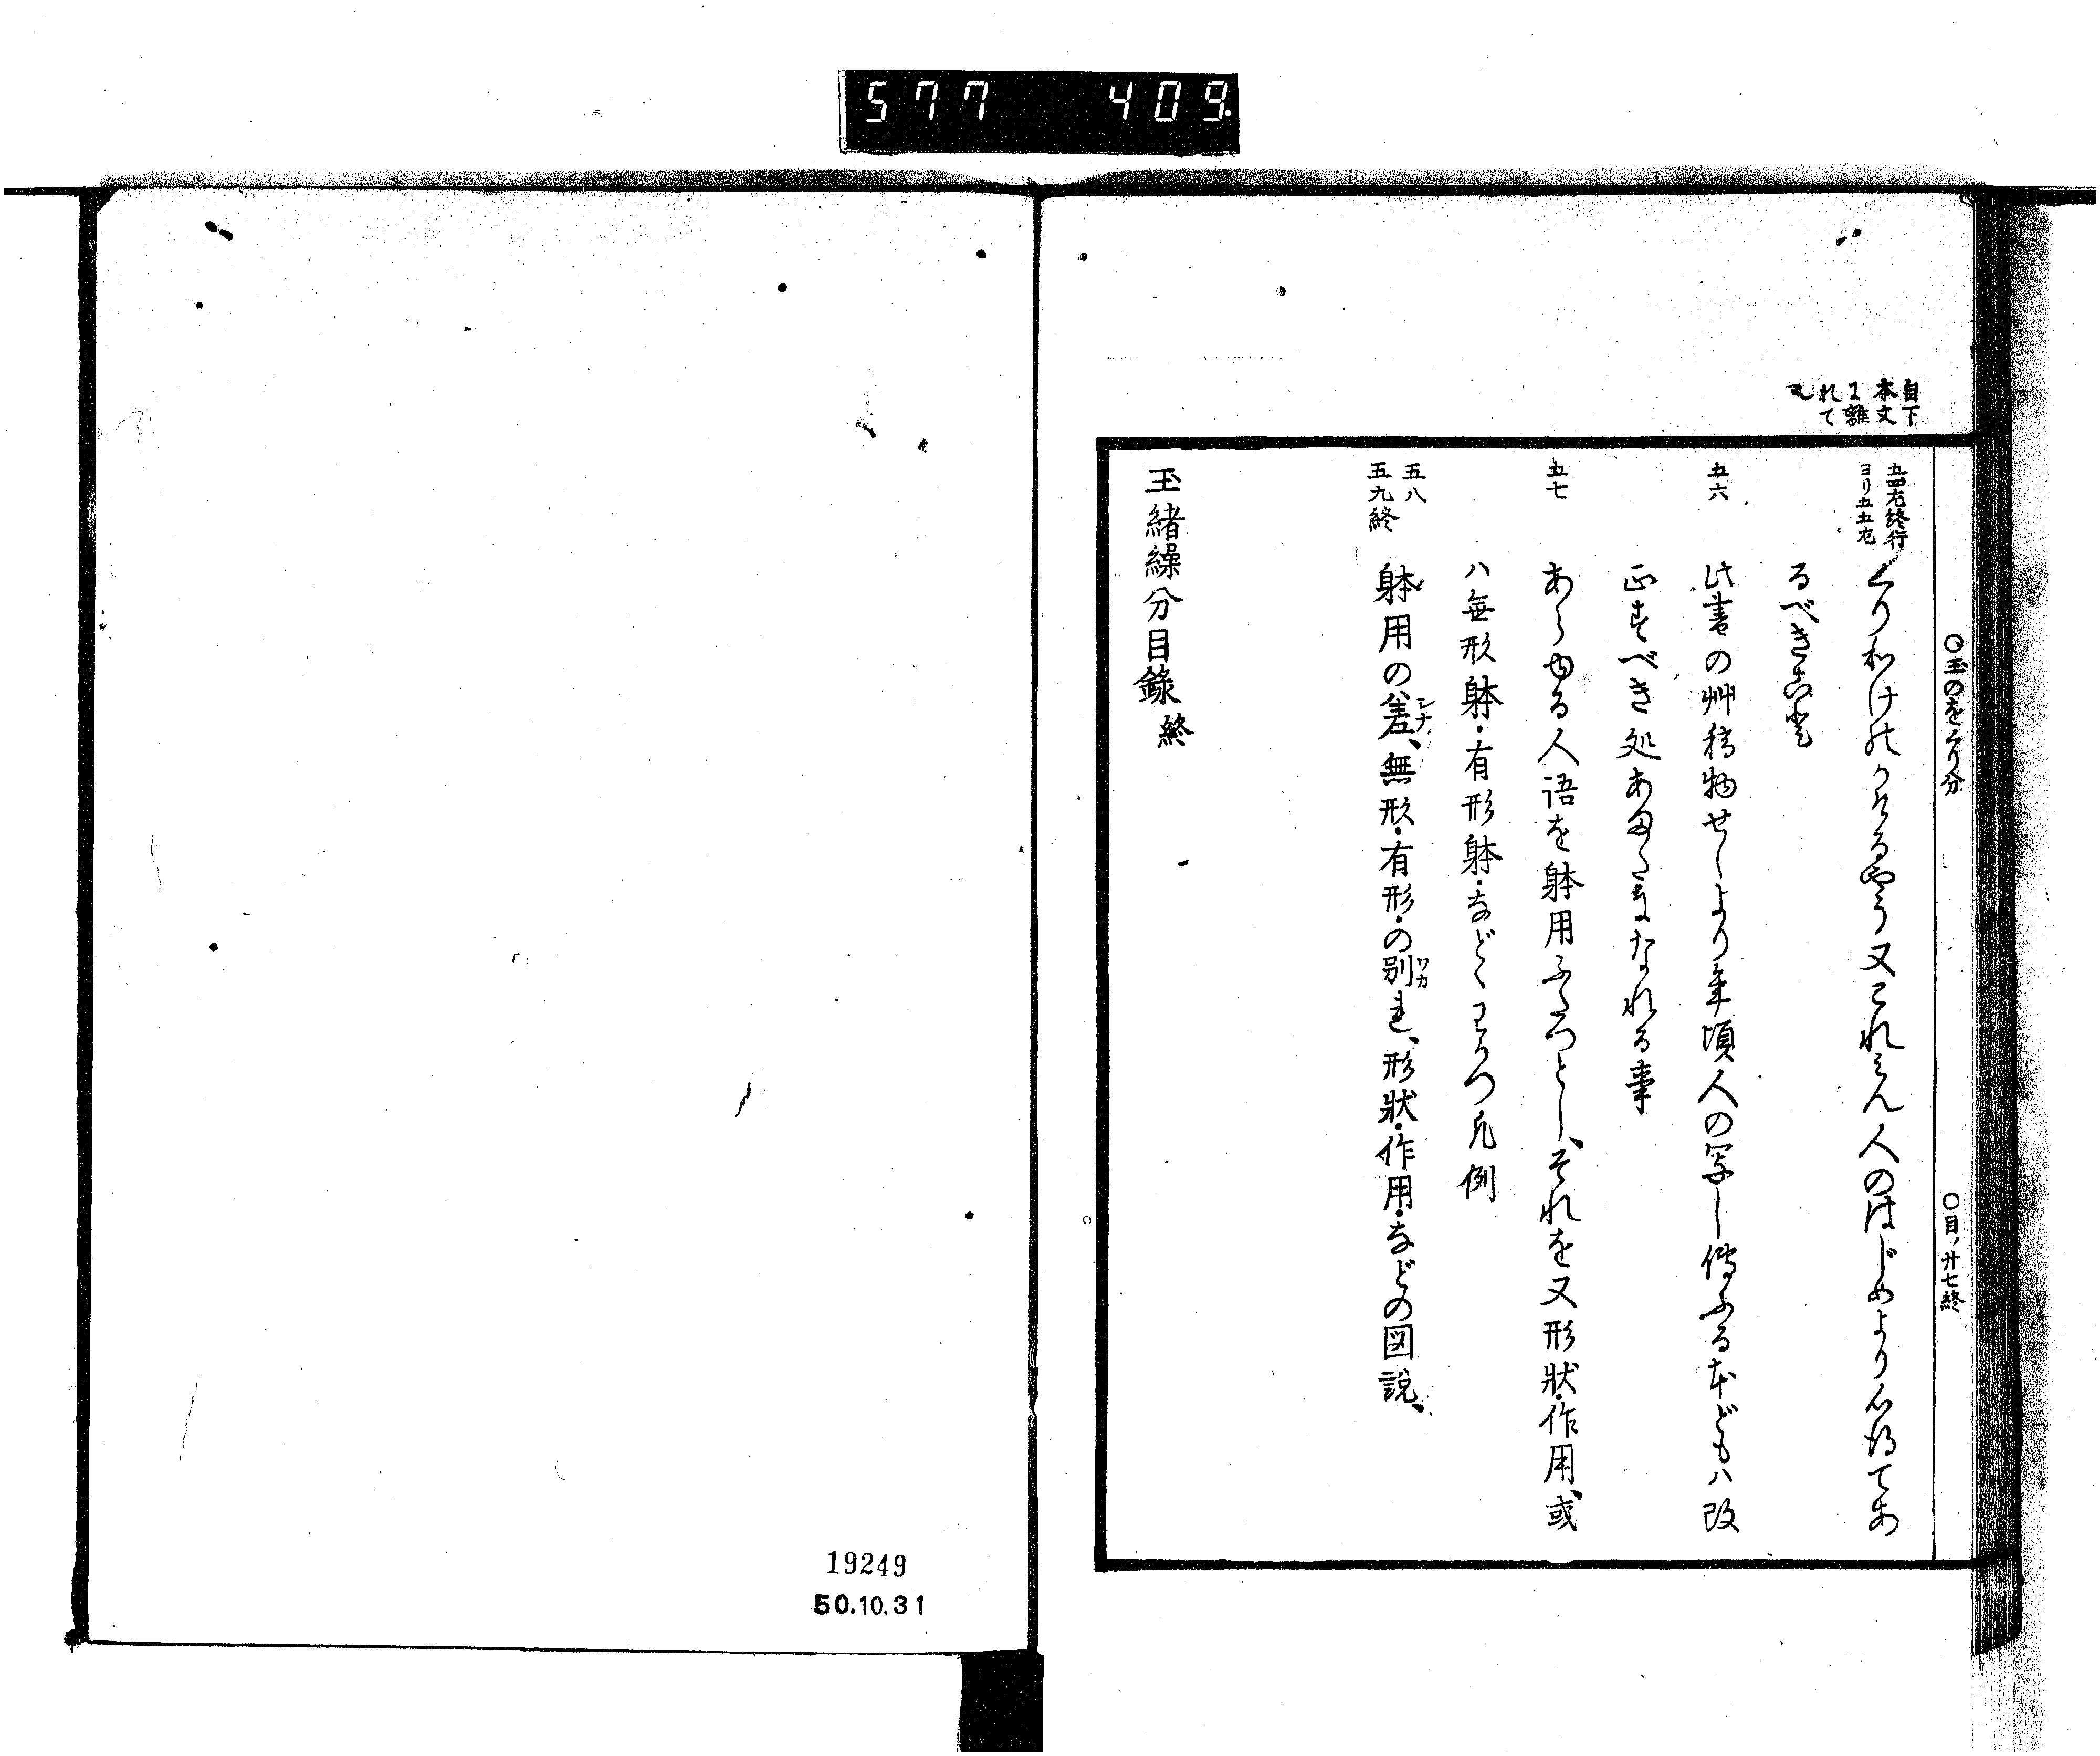 577 409
〇玉のをくり分
〇目ノ廿七終
自下
本文
に離
れて
五四右終行
ヨリ五五左
くりわけの
るやう又これみん人のはじめより心得てあ
るべき
五六
此書の艸稿物せしより年頃人の写し傳ふる本どもハ改
正すべき処あまたになれる事
五七
あらゆる人語を躰用ふたつとし、それを又形狀・作用、或
ハ無形躰・有形躰・などゝわかつ凡例
五八
五九終
躰用の差、無形・有形・の別れ、形狀・作用・などの図説、
シナ
ワカ
玉緒繰分目錄 終
19249
50.10.31